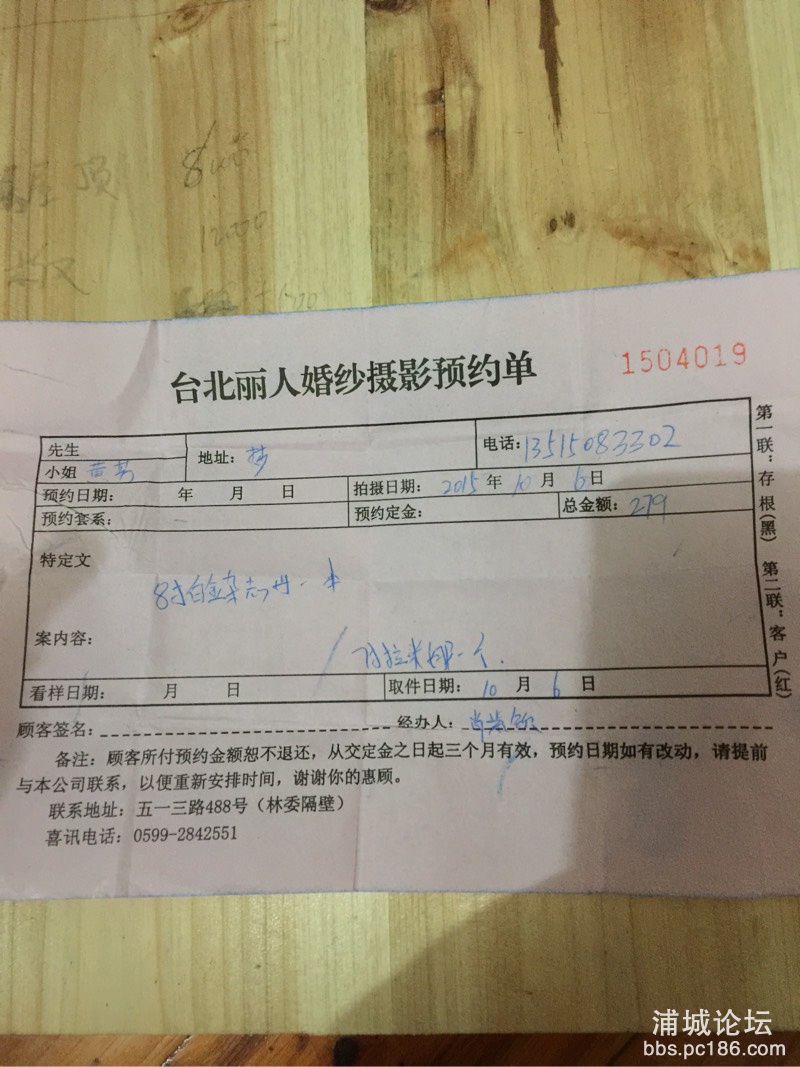 台北丽人婚纱摄影预约单
1504019
先生
小姐
地址：梦
电话：13515083302
预约日期： 年 月 日
拍摄日期：2015年10月6日
预约套系：
预约定金：
总金额：279
特定文
8寸白金杂志册一本
案内容：
一个.
看样日期： 月 日
取件日期：10月6日
顾客签名：
经办人：
备注：顾客所付预约金额恕不退还，从交定金之日起三个月有效，预约日期如有改动，请提前
与本公司联系，以便重新安排时间，谢谢你的惠顾。
联系地址：五一三路488号（林委隔壁）
喜讯电话：0599-2842551
第一联：存根(黑) 第二联：客户(红)
浦城论坛
bbs.pc186.com